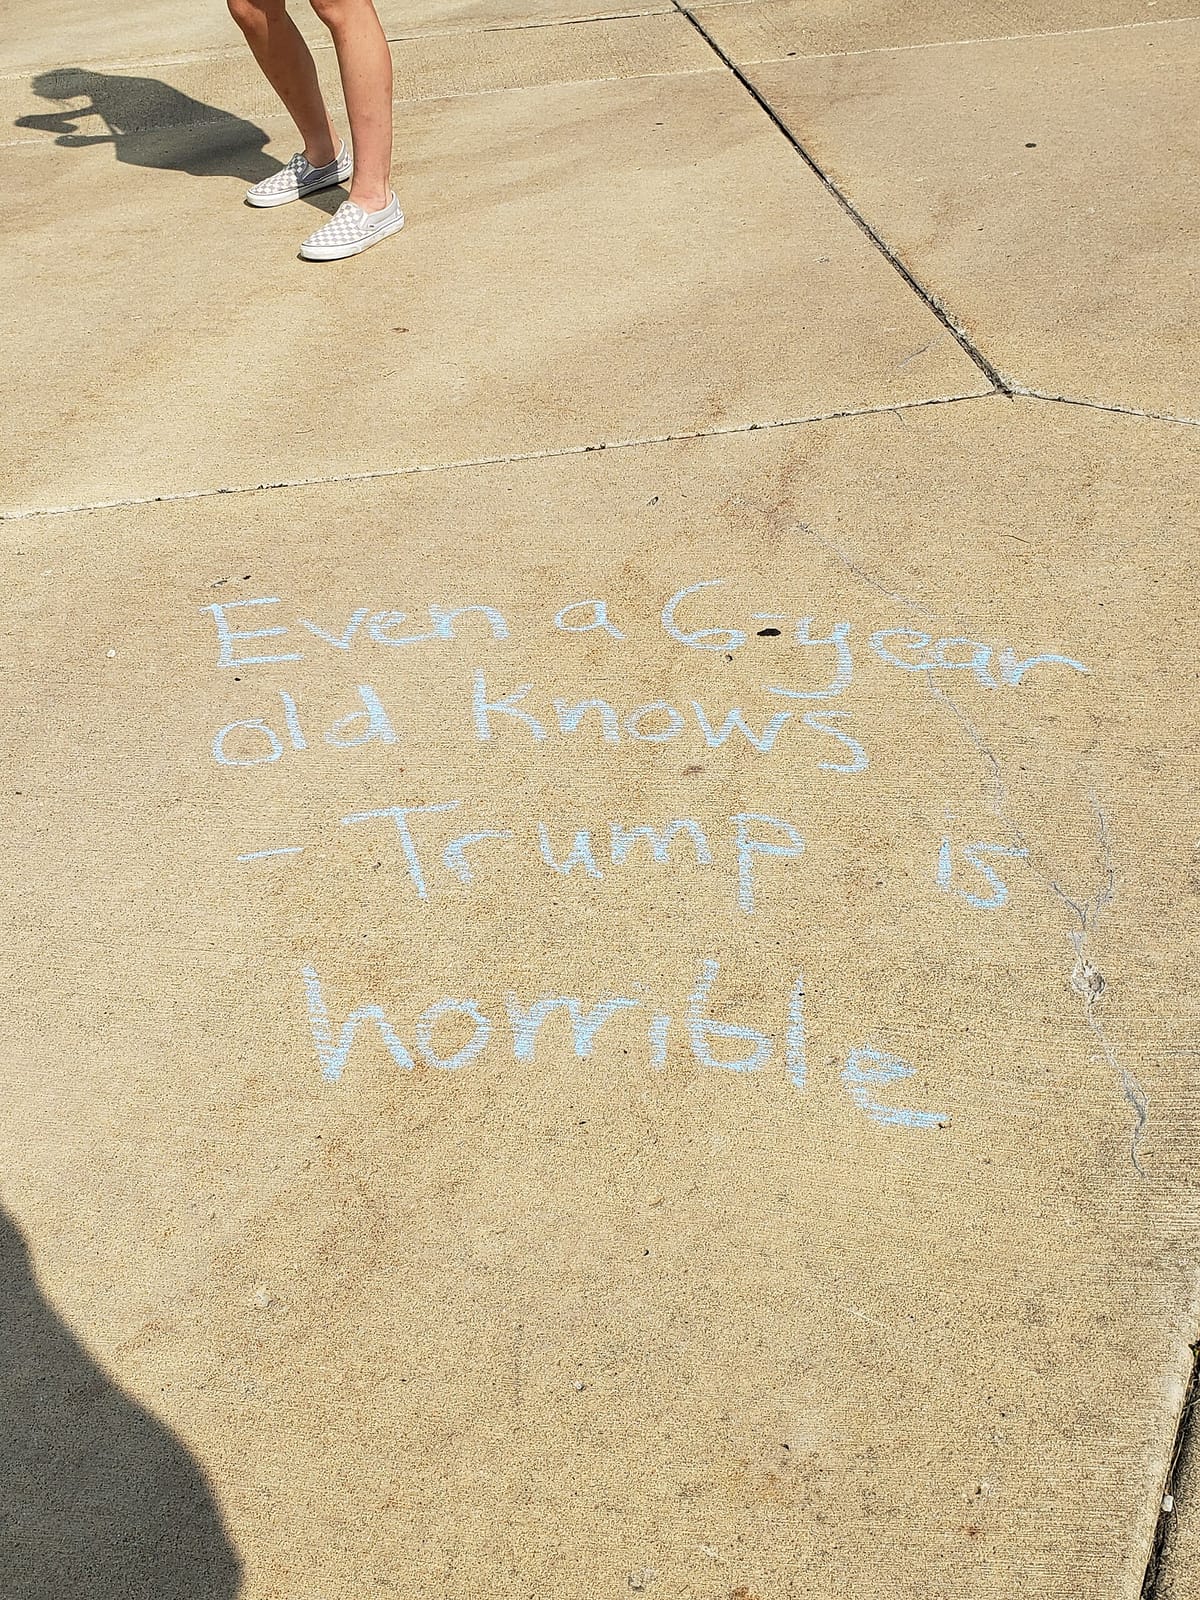 Even a 6-year
old knows
- Trump is
horrible